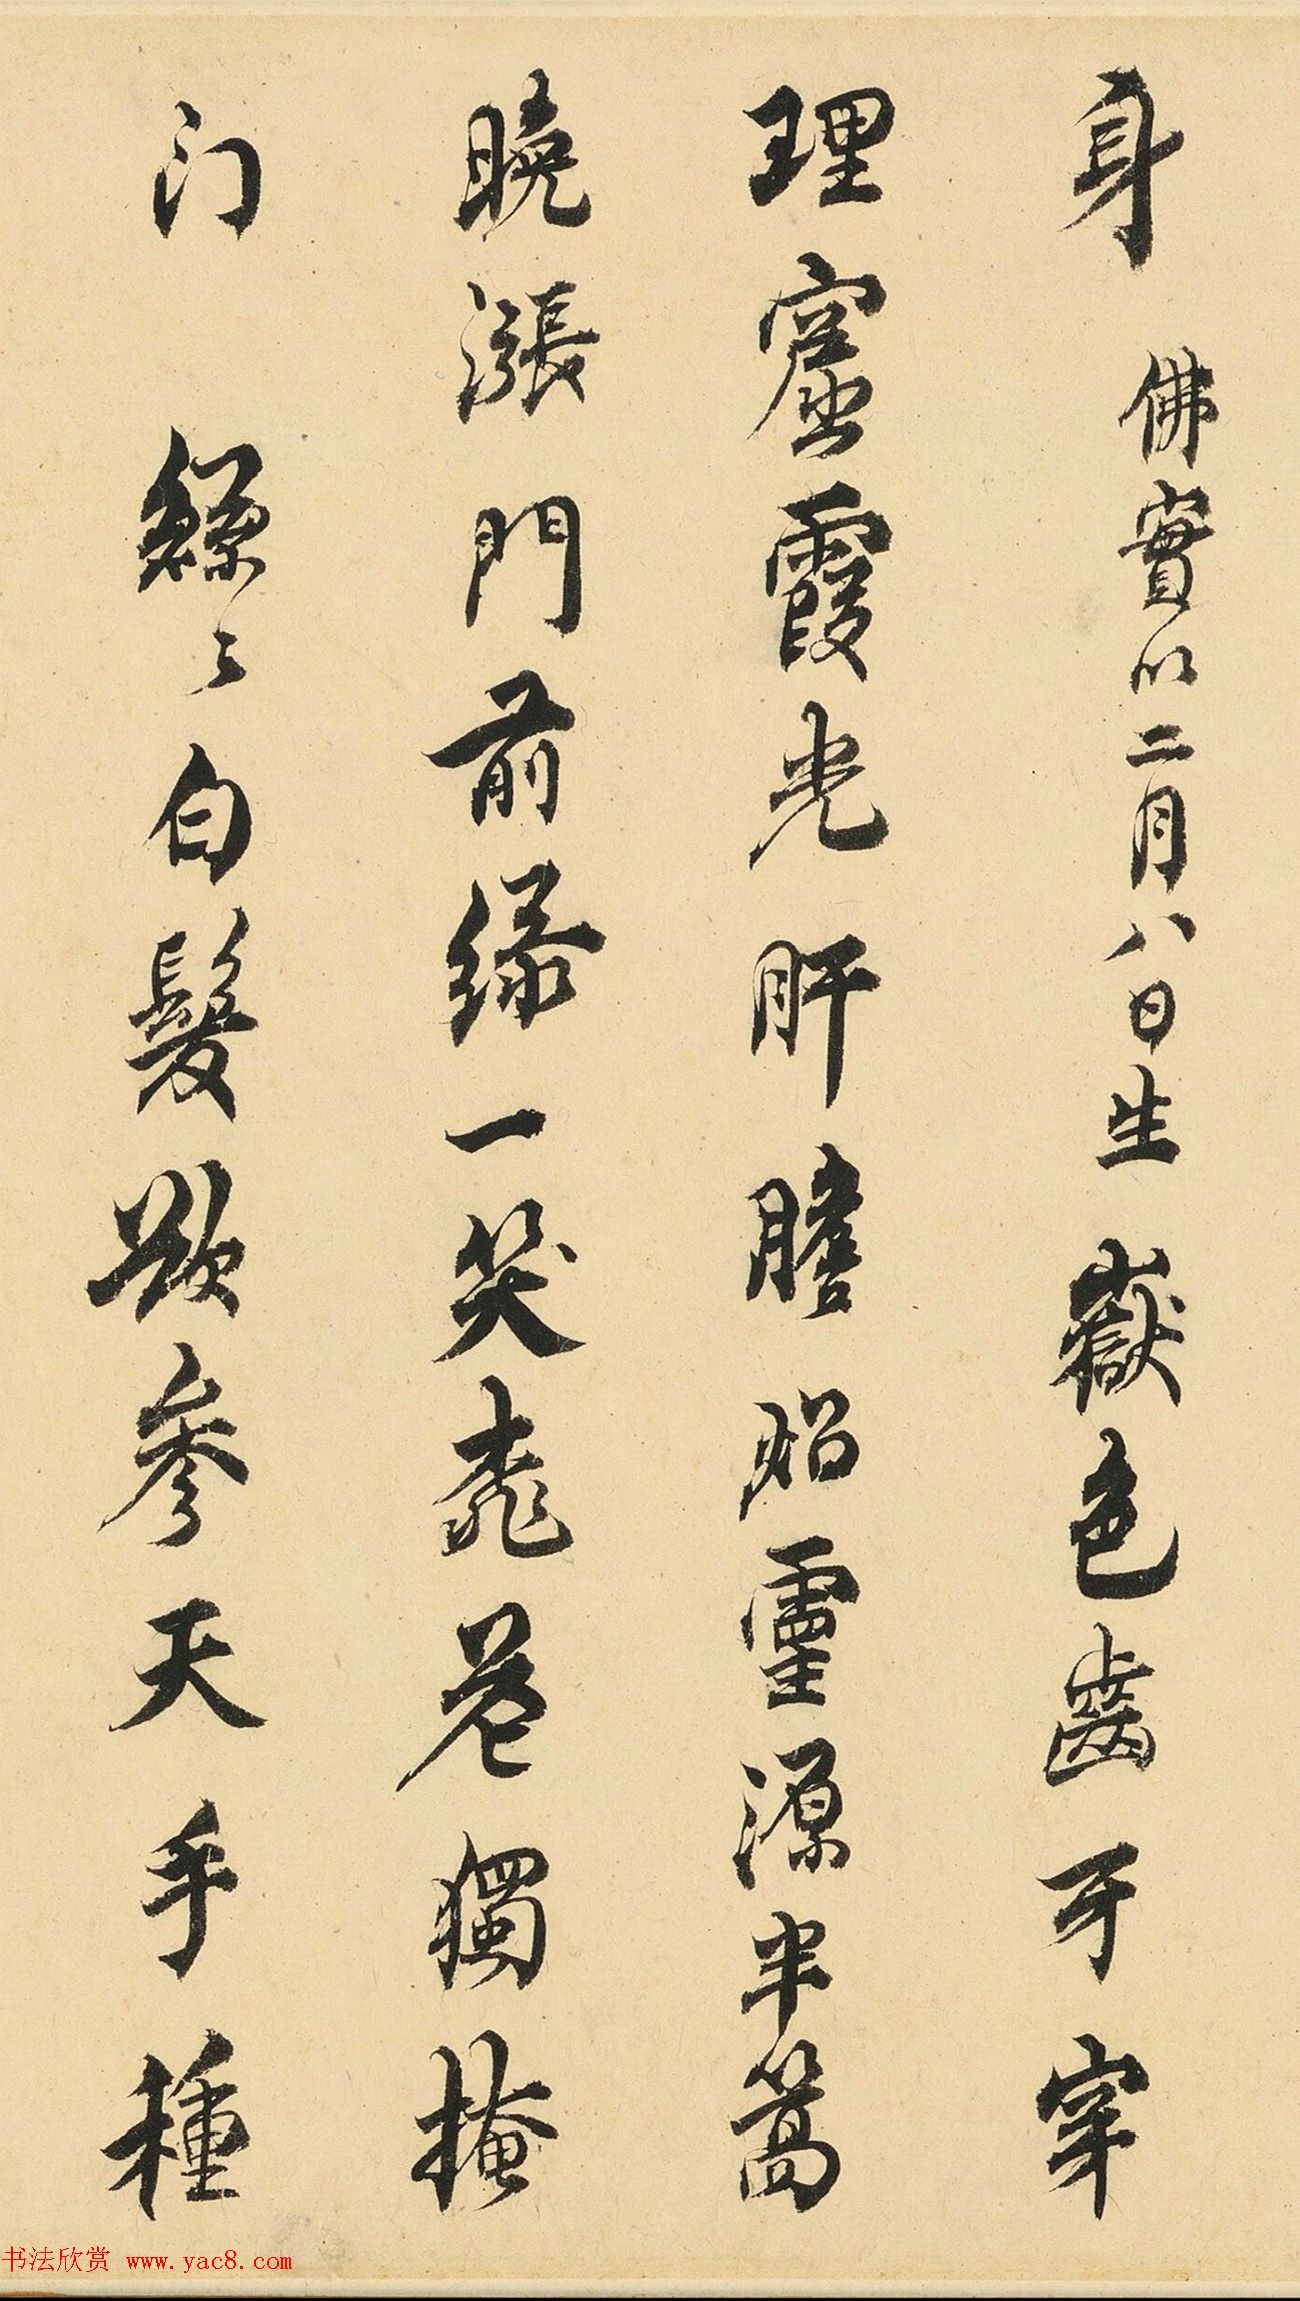 身 佛實以二月八日生 嶽色齒牙穿
理窟霞光肝膽照靈源半篙
曉漲門前緑一笑桃花獨掩
门 鬖〻白髮欺參天手種
书法欣赏 www.yac8.com